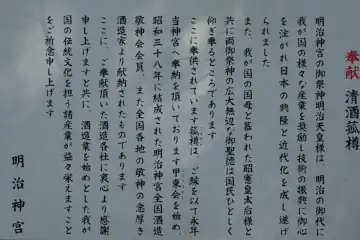 奉献 清酒菰樽
明治神宮の御祭神明治天皇様は、明治の御代に
我が国の様々な産業を奨励し技術の振興に御心
を注がれ日本の興隆と近代化を成し遂げ
られました
また、我が国の国母と慕われた昭憲皇太后様と
共に両御祭神の広大無辺な御聖徳は国民ひとしく
仰ぎ奉るところであります
ここに奉供されています菰樽は、ご縁を以て永年
当神宮へ奉納を頂いております甲東会を始め、
昭和三十八年に結成された明治神宮全国酒造
敬神会会員、また全国各地の敬神の念厚き
酒造家より献納されたものであります
ここに、ご奉献頂いた酒造各社に衷心より感謝
申し上げますと共に、酒造業を始めとした我が
国の伝統文化を担う諸産業が益々栄えますこと
をご祈念申し上げます
明治神宮